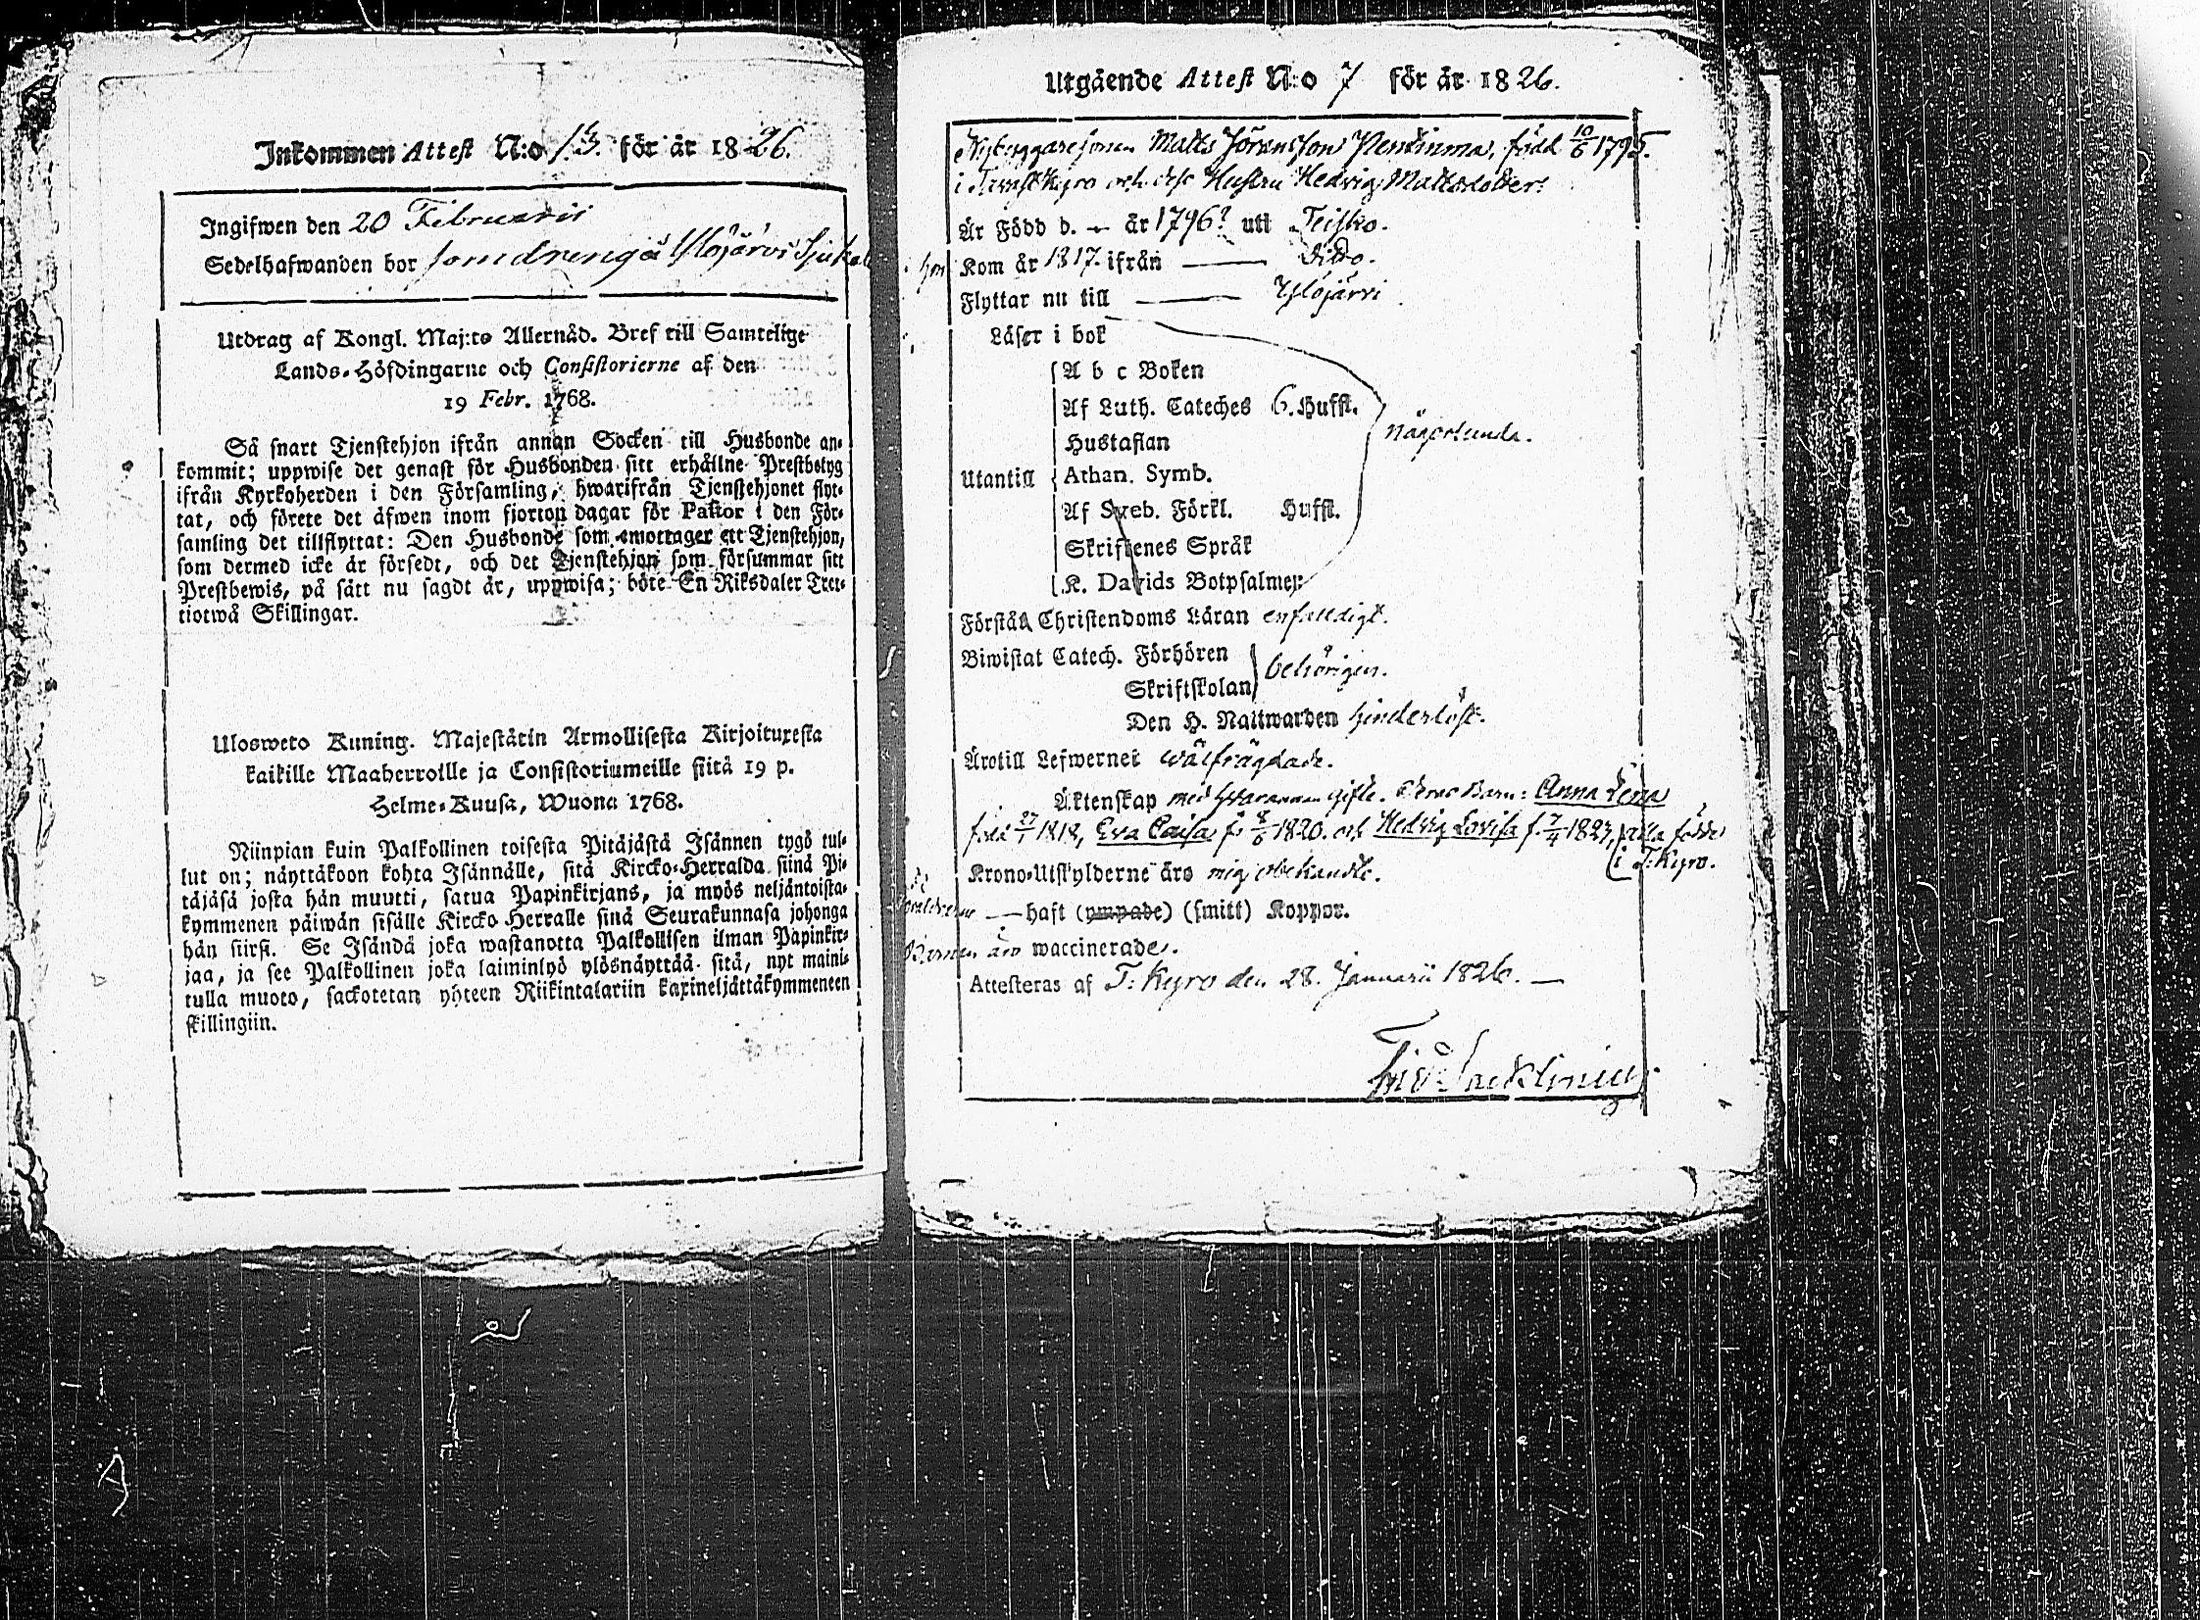 Inkommen Attest N:o 13. för år 1826.
Ingifwen den 20 Februarii
Sedelhafwanden bor som dreng å Ylöjärvi
Utdrag af Kongl. Maj:ts Allernåd. Bref till Samtelige
Lands-Höfdingarne och Consistorierne af den
19 Febr. 1768.
Så snart Tjenstehjon ifrån annan Socken till Husbonde an-
kommit; uppwise det genast för Husbonden sitt erhållne Prestbetyg
ifrån Kyrkoherden i den Församling, hwarifrån Tjenstehjonet flyt-
tat, och förete det äfwen inom fjorton dagar för Pastor i den För-
samling det tillflyttat: Den Husbonde som emottager ett Tjenstehjon,
som dermed icke är försedt, och det Tjenstehjon som försummar sitt
Prestbewis, på sätt nu sagdt är, uppwisa; böte En Riksdaler Tret-
tiotwå Skillingar.
Ulosweto Kuning. Majestätin Armollisesta Kirjoituxesta
kaikille Maaherroille ja Consistoriumeille siitä 19 p.
Helme-Kuusa, Wuona 1768.
Niinpian kuin Palkollinen toisesta Pitäjästä Isännen tygö tul-
lut on; näyttäkoon kohta Isännälle, sitä Kircko-Herralda siinä Pi-
täjäsä josta hän muutti, saatua Papinkirjans, ja myös neljäntoista-
kymmenen päiwän sisälle Kircko-Herralle siinä Seurakunnasa johonga
hän siirsi. Se Isändä joka wastanotta Palkollisen ilman Papinkir-
jaa, ja see Palkollinen joka laiminlyö ylösnäyttää sitä, nyt maini-
tulla muoto, sackotetan yhteen Riikintalariin kaxineljättäkymmeneen
skillingiin.
Utgående Attest N:o 7 för år 1826.
Nybyggaresonen Matts Jöransson Pentinma, född 10/6 1795.
i Tavastkyro och dess Hustru Hedvig Mattsdotter.
Är Född d. — år 1796? utt Teisko.
hon Kom år 1817. ifrån —— Ditto.
Flyttar nu till —— Ylöjärvi
Läser i bok
A b c Boken
Af Luth. Cateches 6. Huffst.
Hustaflan
någorlunda.
Utantill Athan. Symb.
Af Sveb. Förkl. Huffst.
Skriftenes Språk
K. Davids Botpsalmer
Förstå Christendoms Läran enfaldigt.
Biwistat Catech. Förhören
Skriftskolan behörigen.
Den H. Nattwarden hinderlöst.
Äro till Lefwernet wälfrägdade.
Äktenskap med hvarannan gifte. Deras Barn: Anna Lena
född 27/7 1818, Eva Caisa f. 8/6 1820. och Hedvig Lovisa f. 7/4 1823, alla födde
i T:Kyro.
Krono-Utskylderne äro mig obekandte.
— haft (ympade) (smitt) Koppor.
Barnen äro waccinerade.
Attesteras af T:Kyro den 28. Januarii 1826. —